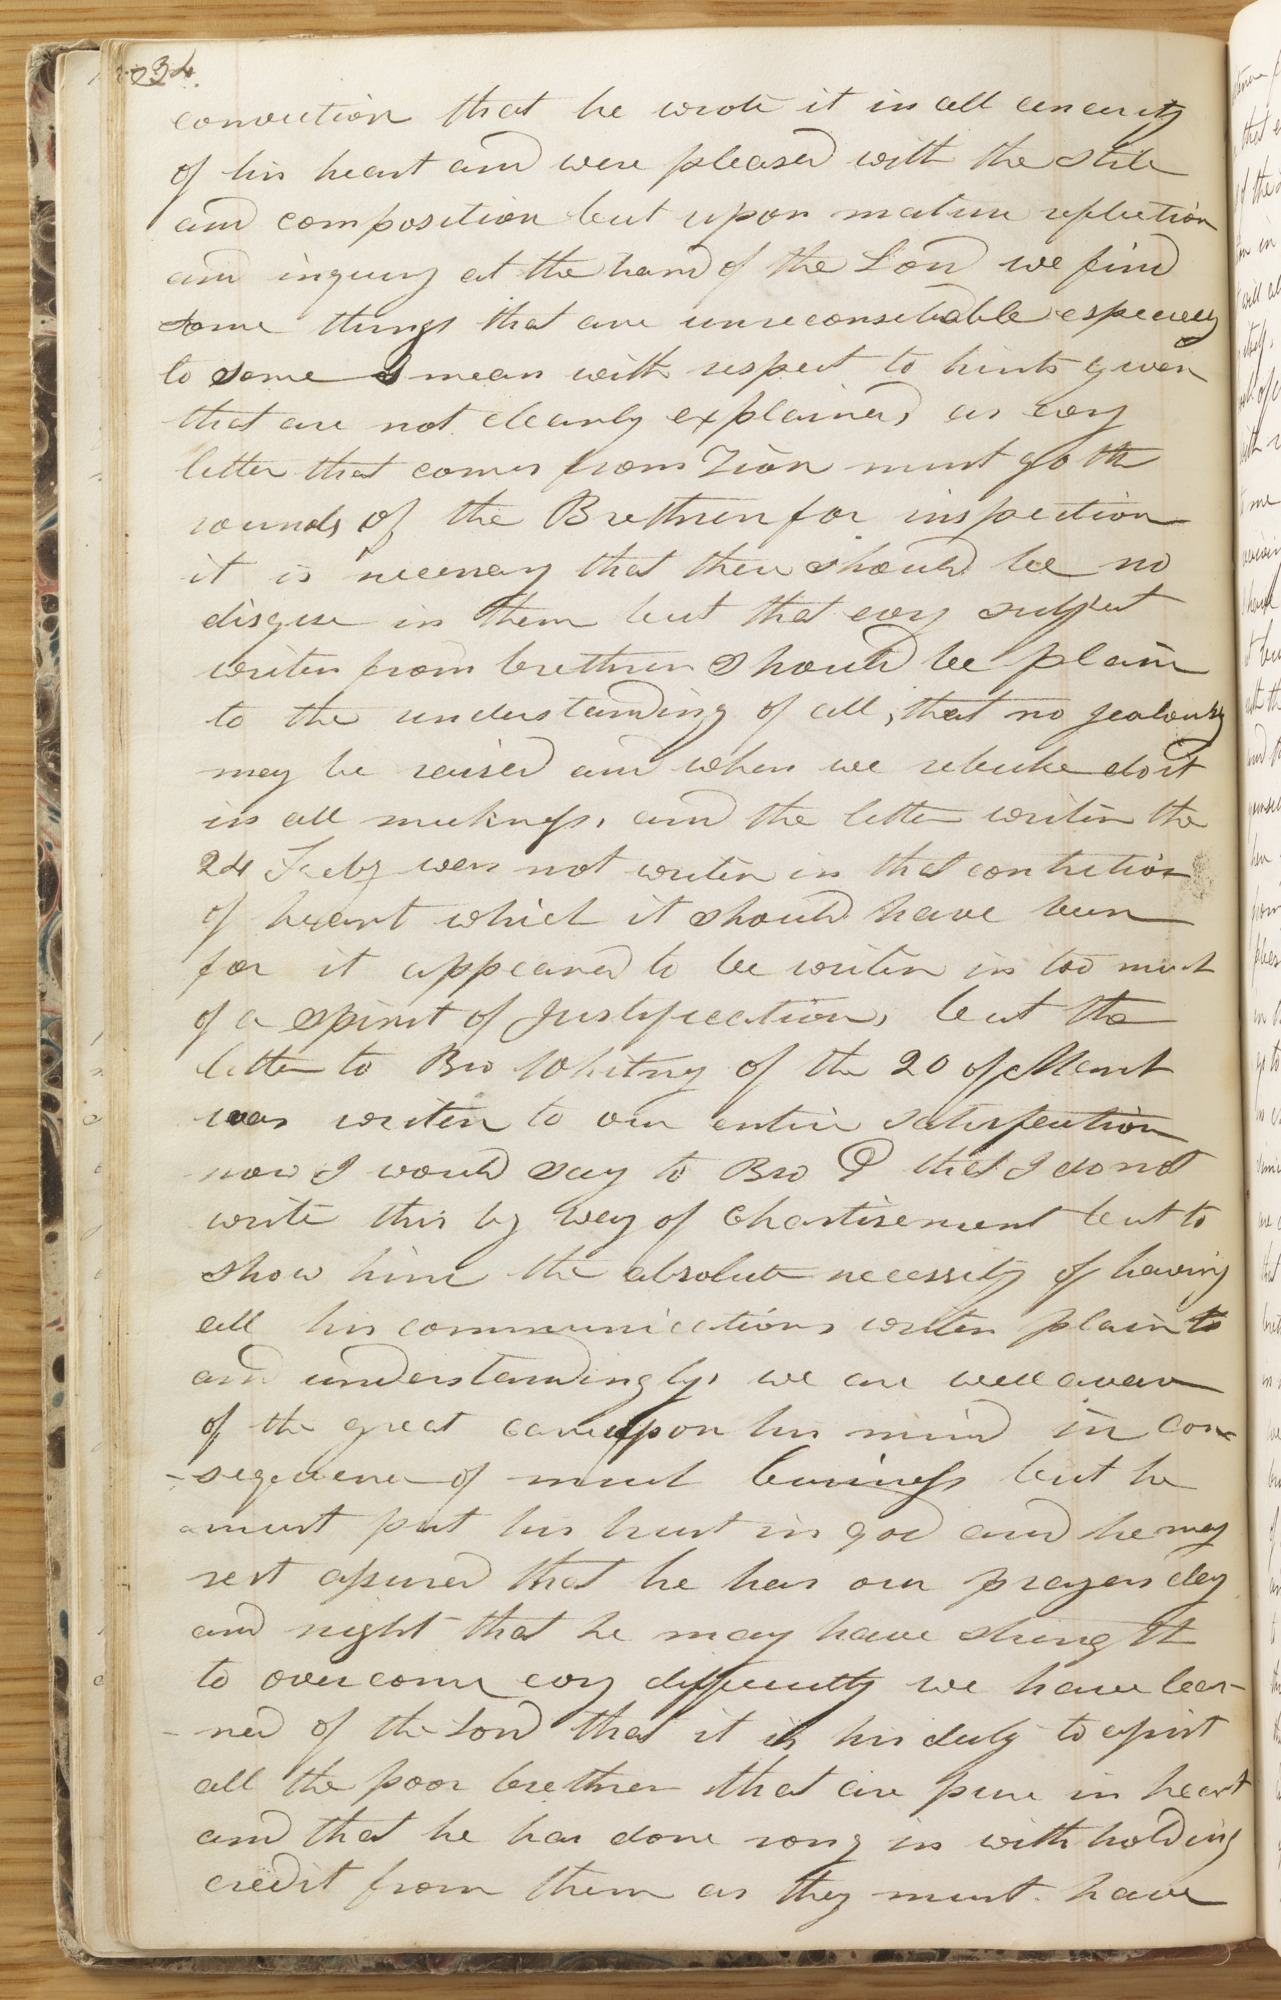 234.
conviction that he wrote it in all cincerity
of his heart and were pleased with the stile
and composition but upon mature reflection
and inquery at the hand of the Lord we find
some things that are unreconsihable especially
to some I mean with respect to hints given
that are not clearly explained, as evry
letter that comes from Zion must go the
rounds of the Brethren for inspection
it is necenary that there should be no
disguse in them but that evry subject
writen from brethren should be plain
to the understanding of all, that no jealousy
may be raised and when we rebuke do it
in all meekness, and the letter writen the
24 Feby was not writen in that contrition
of heart which it should have been
for it appeared to be writen in too much
of a spirit of justification, but the
letter to Bro Whitny of the 20 of March
was writen to our entire satisfaction
now I would say to Bro G that I do not
write this by way of chastisement but to
show him the absolute necessity of having
all his communications writen plain
and understandingly, we are well aware
of the great care upon his mind in con-
-sequence of much business but he
must put his trust in god and he may
rest assured that he has our prayers day
and night that he may have strength
to overcome evry difficulty we have lear-
-ned of the Lord that it is his duty to assist
all the poor brethren that are pure in heart
and that he has done rong in with holding
credit from them as they must have